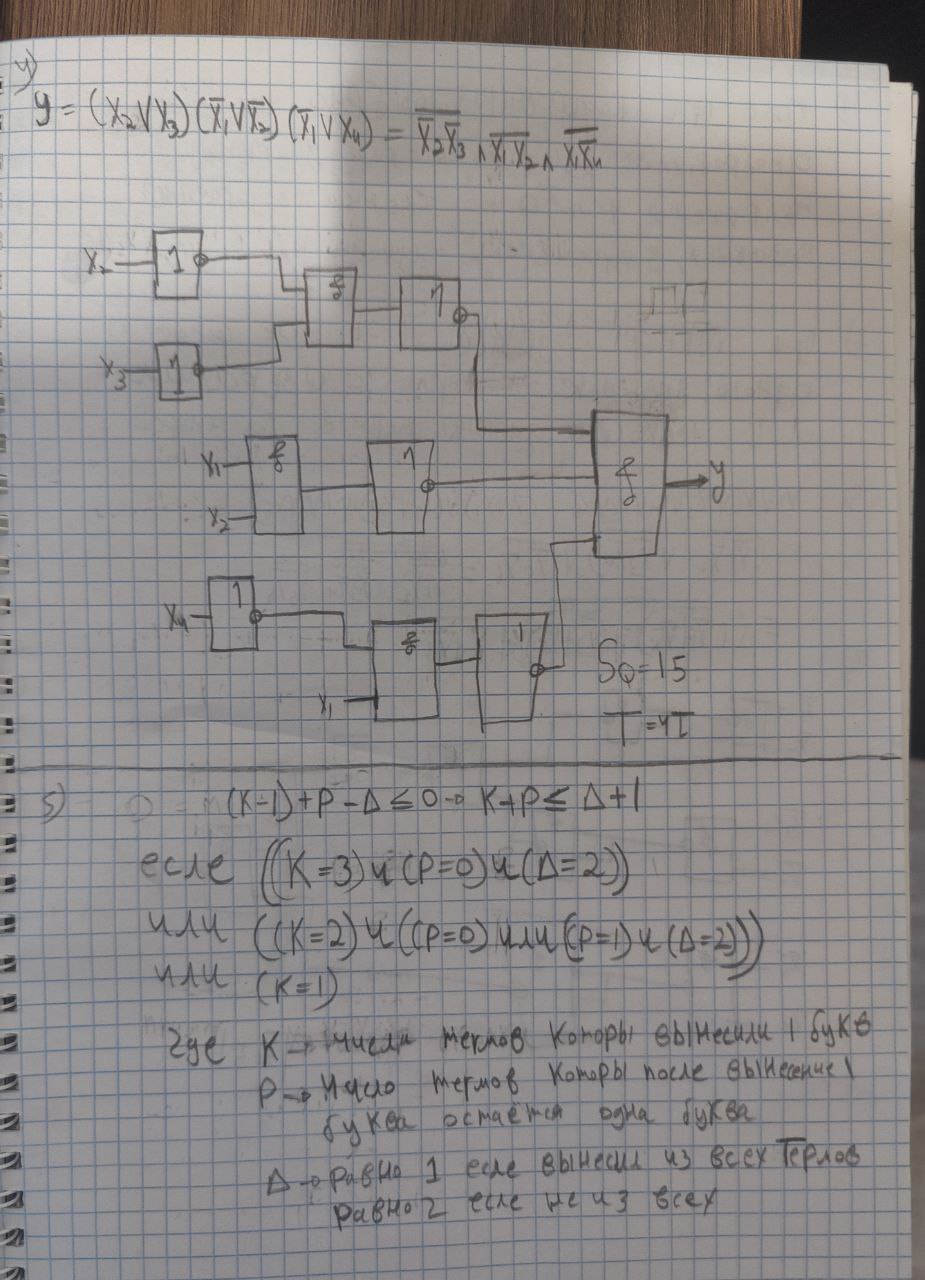 4)
y = (x₂ ∨ x₃) (x̅₁ ∨ x̅₂) (x̅₁ ∨ x₄) = \overline{x̅₂ x̅₃} ∧ \overline{x₁ x₂} ∧ \overline{x₁ x̅₄}
x₂ 1 & 1
x₃ 1
x₁ & 1 & y
x₂
x₄ 1 & 1
x₁
S_Q = 15
T = 4τ
5) (K-1)+P-Δ ≤ 0 → K+P ≤ Δ+1
есле ((K=3) и (P=0) и (Δ=2))
или ((K=2) и ((P=0) или ((P=1) и (Δ=2)))
или (K=1)
где K → числи термов которы вынесили 1 букв
P → число термов которы после вынесение 1
буква остаётся одна буква
Δ → равно 1 есле вынесил из всех Термов
равно 2 есле не из всех